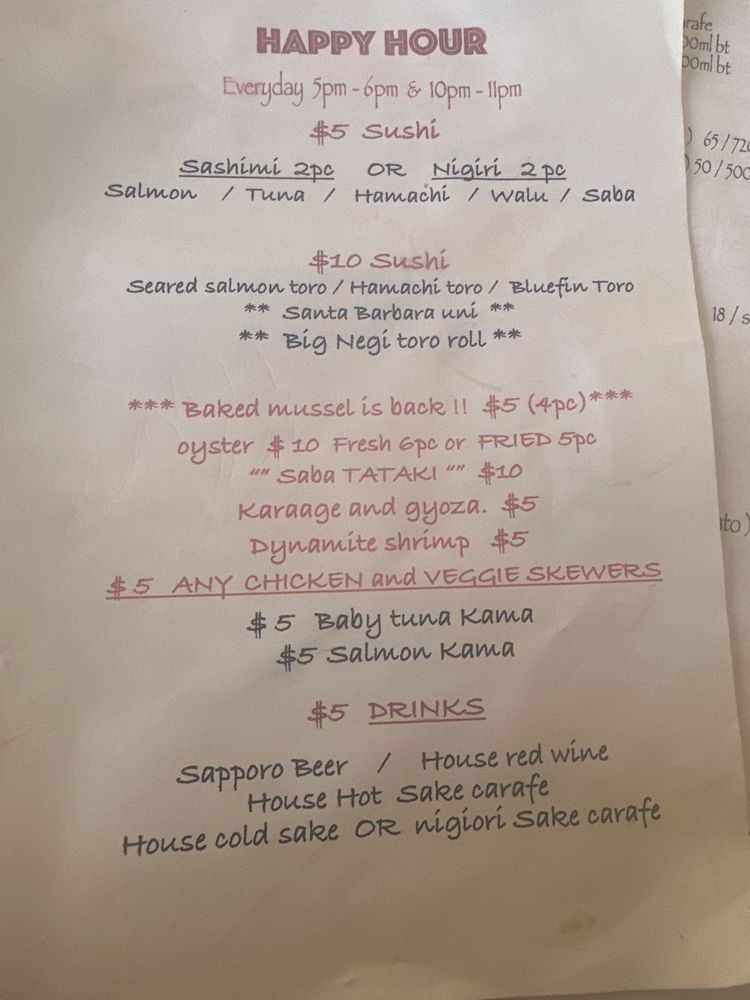 HAPPY HOUR
Everyday 5pm - 6pm & 10pm - 11pm
$5 Sushi
Sashimi 2pc OR Nigiri 2pc
Salmon / Tuna / Hamachi / Walu / Saba
$10 Sushi
Seared salmon toro / Hamachi toro / Bluefin Toro
** Santa Barbara uni **
** Big Negi toro roll **
*** Baked mussel is back !! $5 (4pc)***
oyster $10 Fresh 6pc or FRIED 5pc
"" Saba TATAKI "" $10
Karaage and gyoza. $5
Dynamite shrimp $5
$5 ANY CHICKEN and VEGGIE SKEWERS
$5 Baby tuna Kama
$5 Salmon Kama
$5 DRINKS
Sapporo Beer / House red wine
House Hot Sake carafe
House cold sake OR nigiori Sake carafe
65/720
50/500
18/s